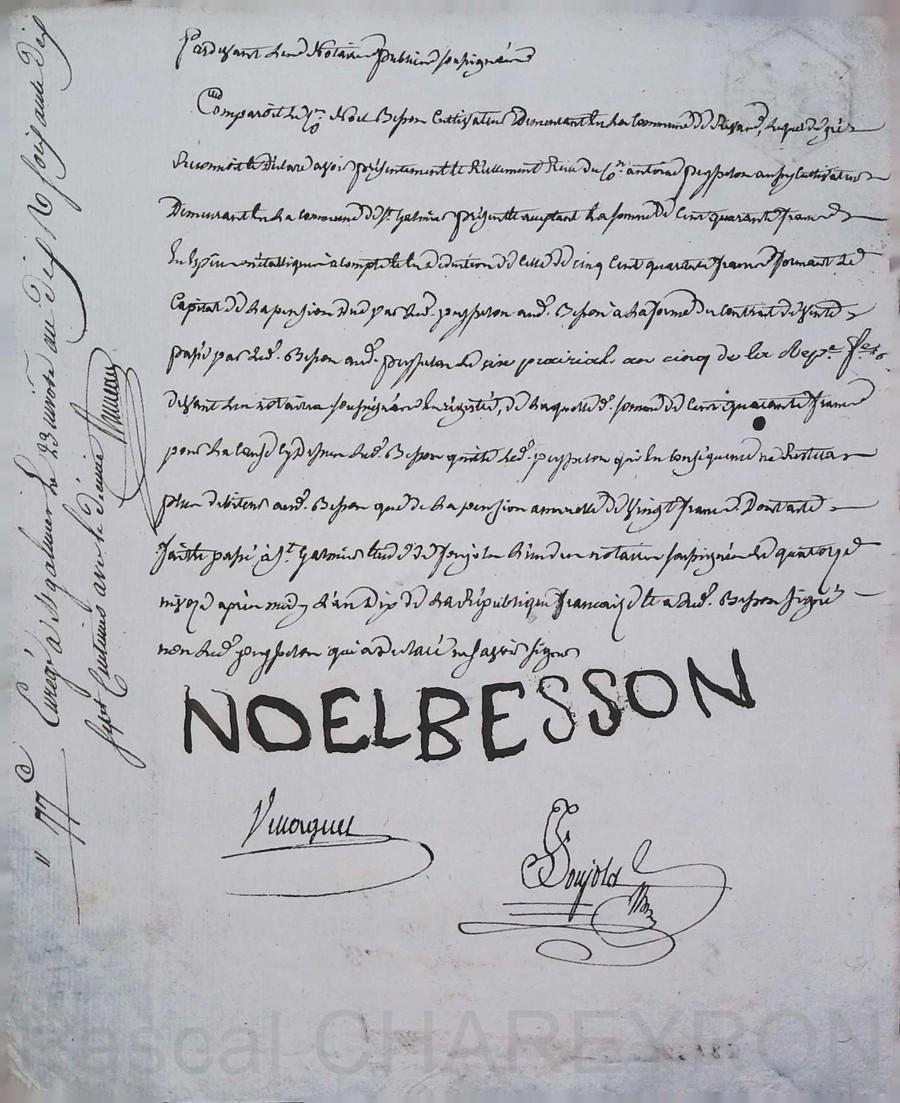 Pardevant les Notaires publics soussignés
Comparoit le Cn. Noel Besson Cultivateur Demeurant en la Commune de, Lequel de gré
Reconnoit et Déclare avoir présentement et Réellement Reçu du Cn. antoine peysselon aussy Cultivateur
Demeurant en la commune de St. Galmier présent et acceptant La somme de Cent quarante francs
En Espèces métalliques à compte et en déduction de Celle de cinq Cent quarante francs formant Le
Capital de la pension due par led. peysselon aud. Besson à la forme du Contrat de Vente
passé par led. Besson aud. peysselon le six prairial an cinq de la Repe. fse.
devant les notaires soussignés Enregistré, de Laquelle d. somme de Cent quarante francs
pour la cause cy dessus led. Besson quitte led. peysselon qui En conséquence ne Restera
plus débiteur aud. Besson que de la pension annuelle de Vingt francs. Dont acte
fait et passé à St. Galmier Etude de Joujolas L'un des notaires soussignés Le quatorze
nivose après midy L'an Dix de la République francaise et a led. Besson signé
non led. peysselon qui a déclaré ne savoir signer
NOEL BESSON
Joujolas
Enregé. à St galmier le 23 nivose an Dix R
sept Centimes avec le dixieme